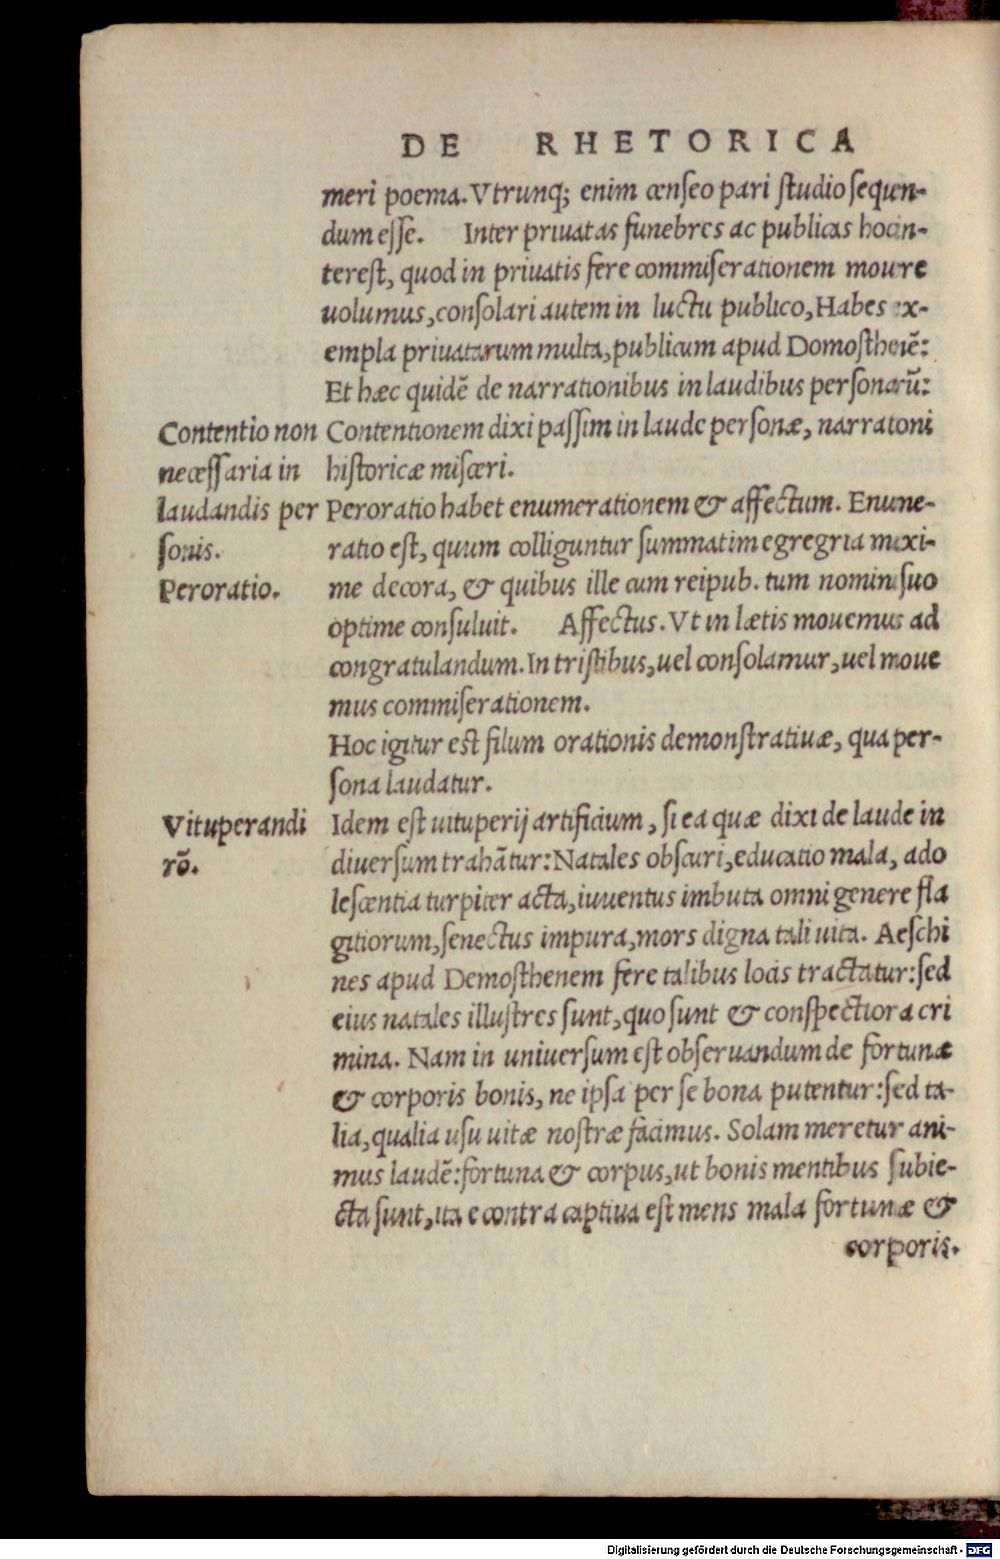 DE RHETORICA
meri poema. Vtrunq; enim censeo pari studio sequen-
dum esse. Inter priuatas funebres ac publicas hoc in-
terest, quod in priuatis fere commiserationem mouere
uolumus, consolari autem in luctu publico, Habes ex-
empla priuatarum multa, publicam apud Domosthenē:
Et hæc quidē de narrationibus in laudibus personarū:
Contentio non
necessaria in
laudandis per
sonis.
Contentionem dixi passim in laude personæ, narratoni
historicæ misceri.
Peroratio.
Peroratio habet enumerationem & affectum. Enume-
ratio est, quum colliguntur summatim egregria maxi-
me decora, & quibus ille cum reipub. tum nomini suo
optime consuluit. Affectus. Vt in lætis mouemus ad
congratulandum. In tristibus, uel consolamur, uel moue
mus commiserationem.
Hoc igitur est filum orationis demonstratiuæ, qua per-
sona laudatur.
Vituperandi
rō.
Idem est uituperij artificium, si ea quæ dixi de laude in
diuersum trahātur: Natales obscuri, educatio mala, ado
lescentia turpiter acta, iuuentus imbuta omni genere fla
gitiorum, senectus impura, mors digna tali uita. Aeschi
nes apud Demosthenem fere talibus locis tractatur: sed
eius natales illustres sunt, quo sunt & conspectiora cri
mina. Nam in uniuersum est obseruandum de fortunæ
& corporis bonis, ne ipsa per se bona putentur: sed ta-
lia, qualia usu uitæ nostræ facimus. Solam meretur ani-
mus laudē: fortuna & corpus, ut bonis mentibus subie-
cta sunt, ita e contra captiua est mens mala fortunæ &
corporis.
Digitalisierung gefördert durch die Deutsche Forschungsgemeinschaft - DFG